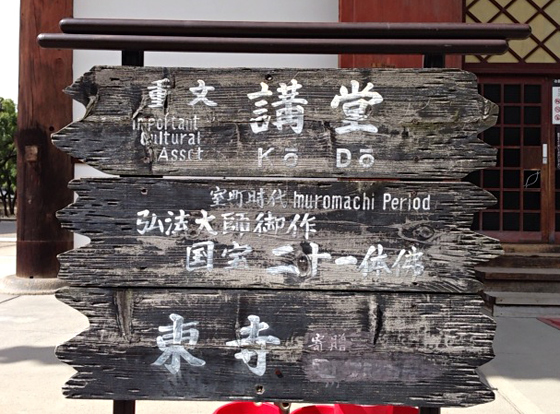 重文 講堂
Important
Cultural
Asset
Kō Dō
室町時代 muromachi Period
弘法大師御作
国宝 二十一体佛
東寺 寄贈